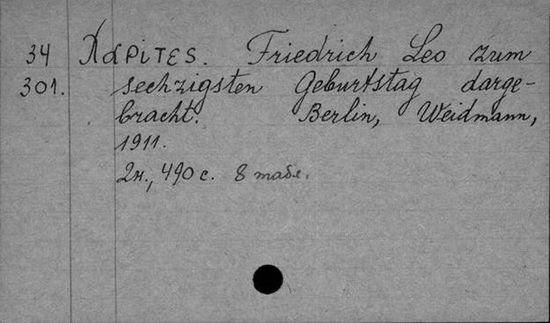 34 Χάριτες. Friedrich Leo zum
301. sechzigsten Geburtstag darge-
bracht. Berlin, Weidmann,
1911.
2н., 490 с. 8 табл.